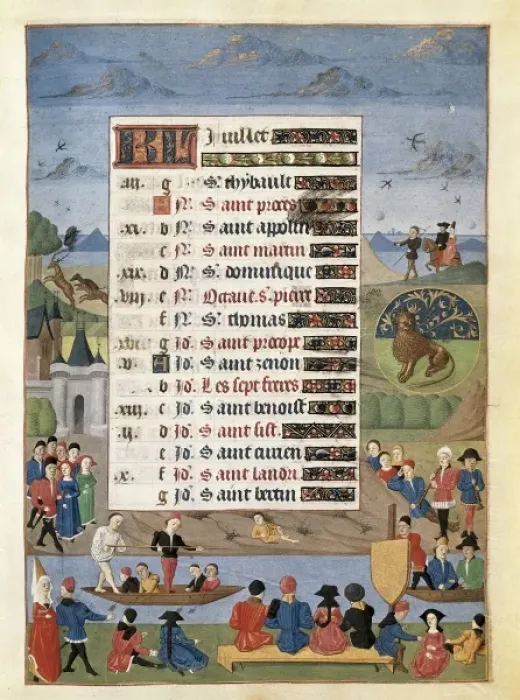 KL Juillet
.iii. g S. thybault
A N. Saint proces
.xi. b N. Saint appolin
c N. Saint martin
.xix. d N. S. dominique
.viii. e N. Octaue. s. pierre
f N. S. thomas
.xvi. g Id. Saint procope
.v. A Id. Saint zenon
b Id. Les sept freres
.xiii. c Id. Saint benoist
.ii. d Id. Saint sist
e Id. Saint
.x. f Id. Saint landri
g Id. Saint bertin